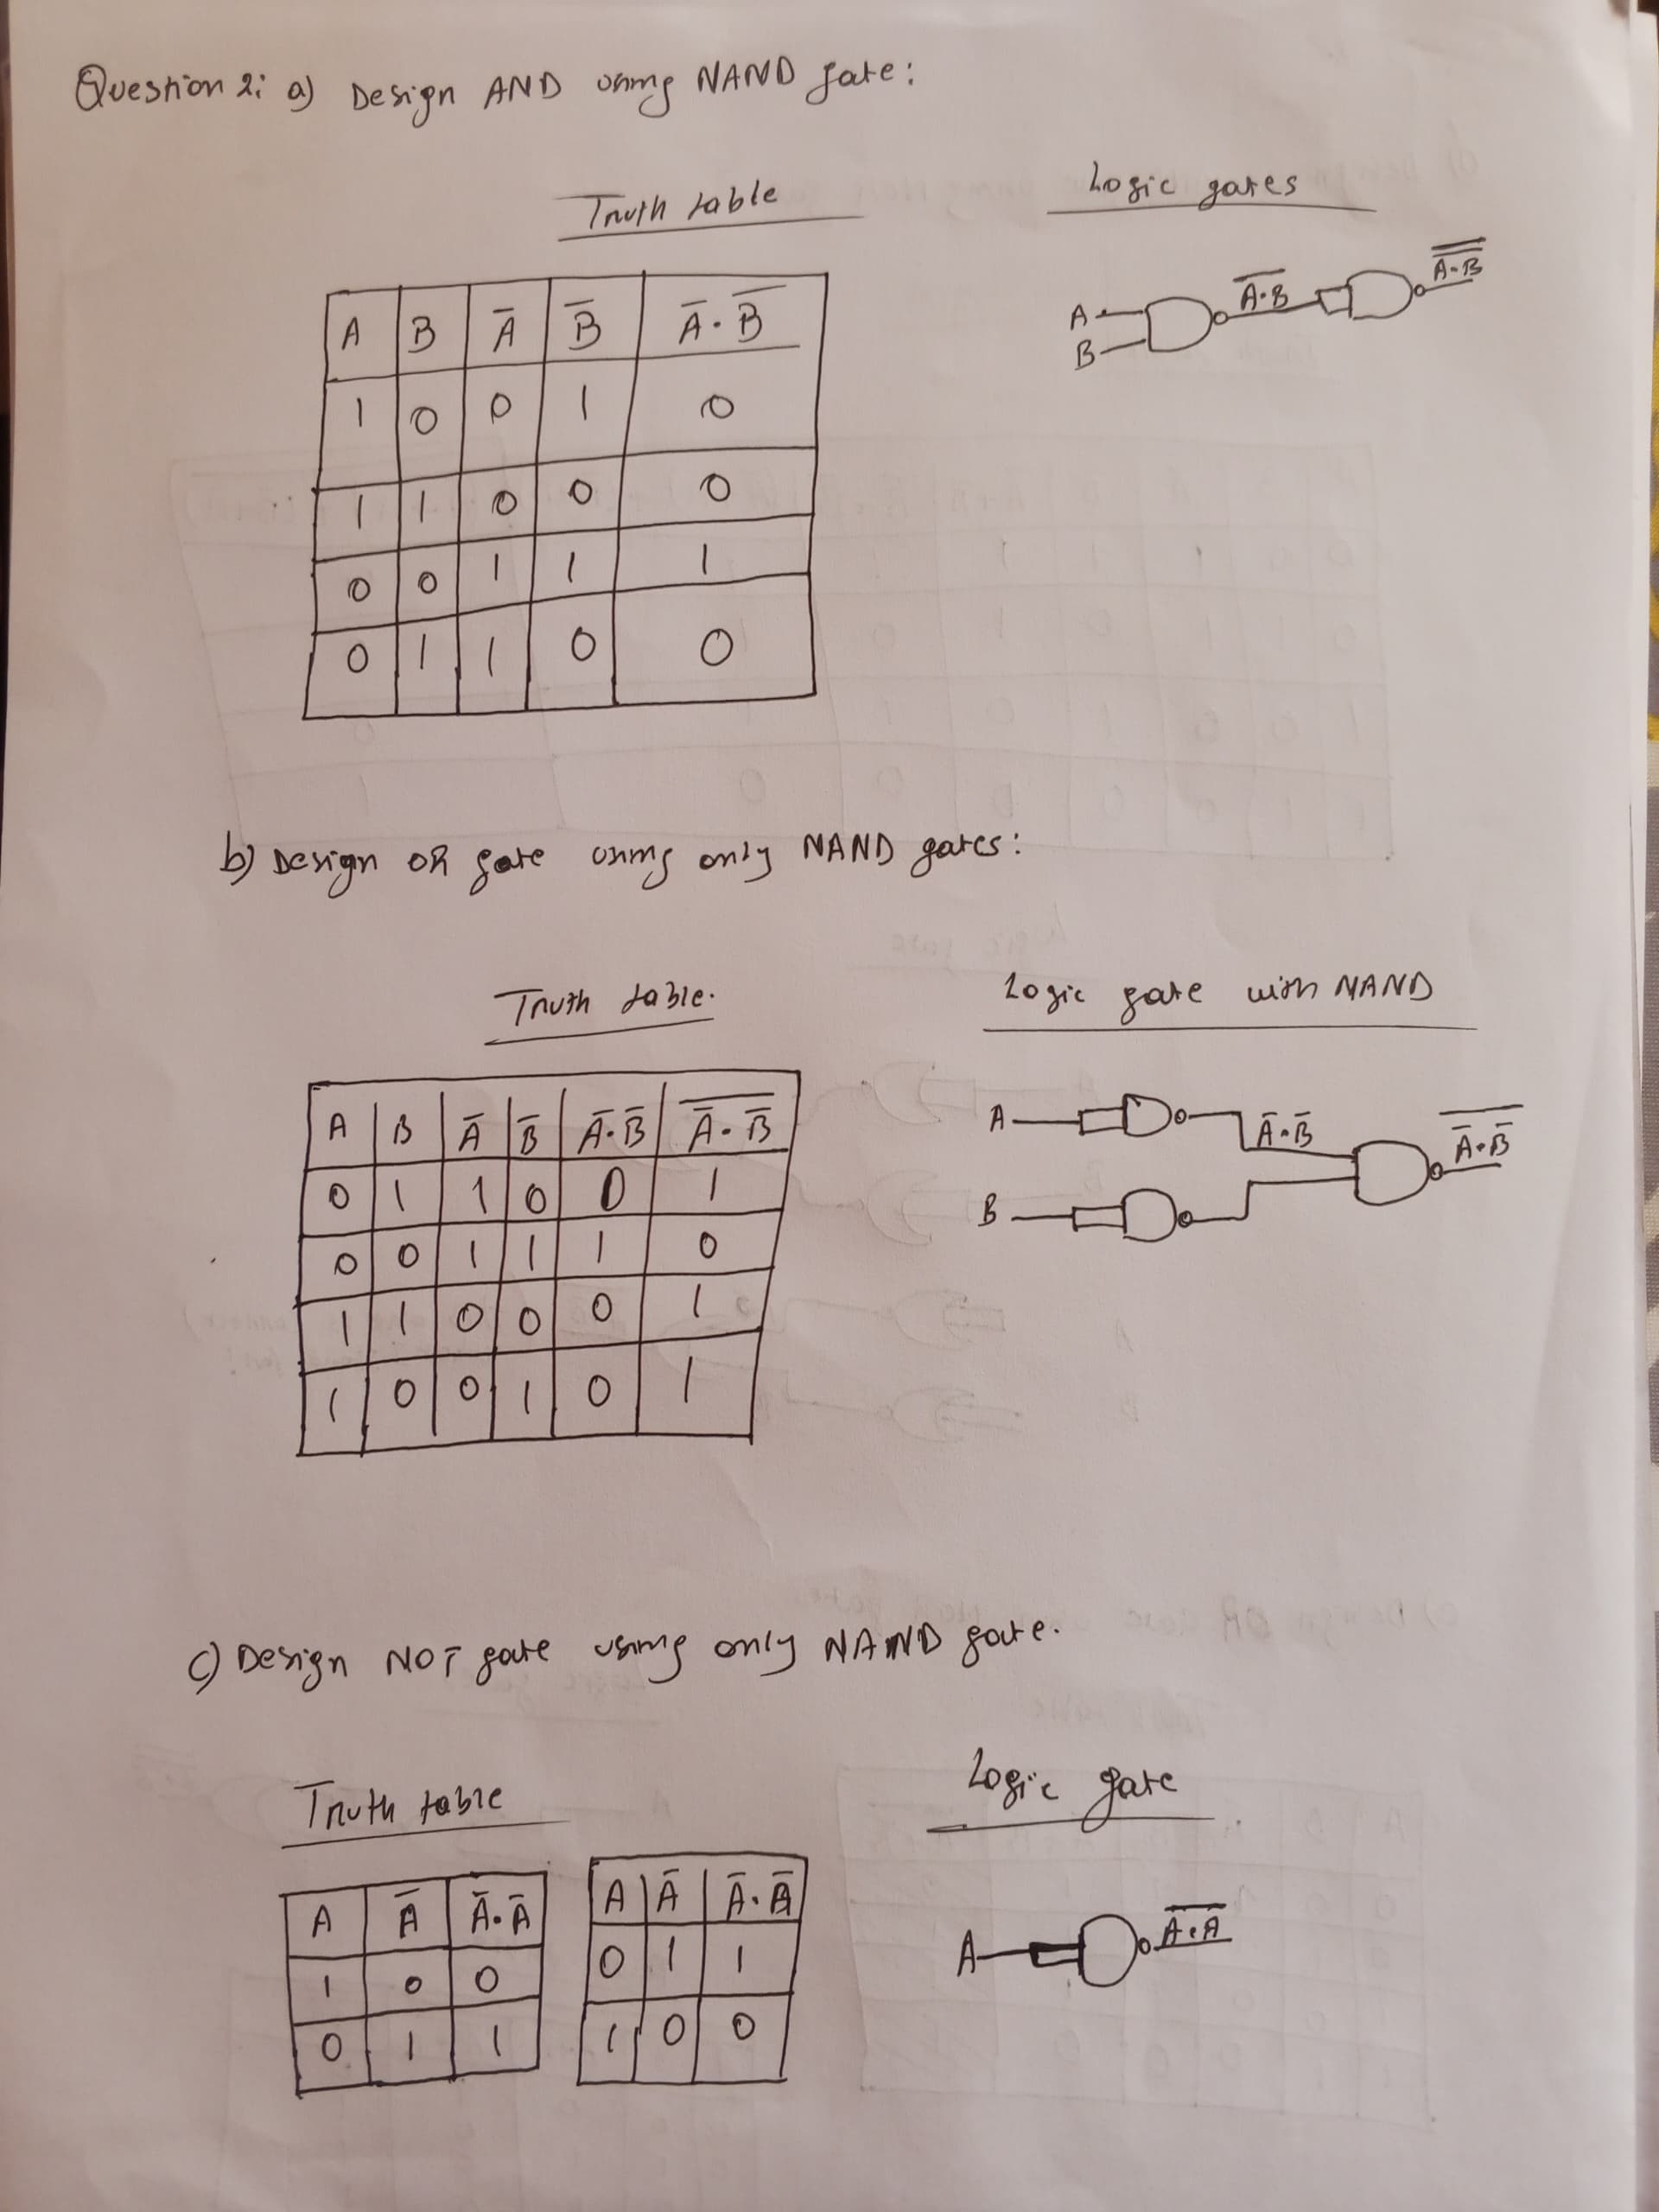 Question 2: a) Design AND using NAND gate:
Truth table
A B A̅ B̅ A̅ · B̅
1 0 0 1 0
1 1 0 0 0
0 0 1 1 1
0 1 1 0 0
Logic gates
A
B
A̅·̅B̅
A̿·̿B̿
b) Design OR gate using only NAND gates:
Truth table.
A B A̅ B̅ A̅·B̅ A̿·̅B̿
0 1 1 0 0 1
0 0 1 1 1 0
1 1 0 0 0 1
1 0 0 1 0 1
Logic gate with NAND
A
B
A̅·B̅
A̿·̅B̿
c) Design NOT gate using only NAND gate.
Truth table
A A̅ A̅·A̅
1 0 0
0 1 1
A A̅ A̅·A̅
0 1 1
1 0 0
Logic gate
A
A̅·̅A̅